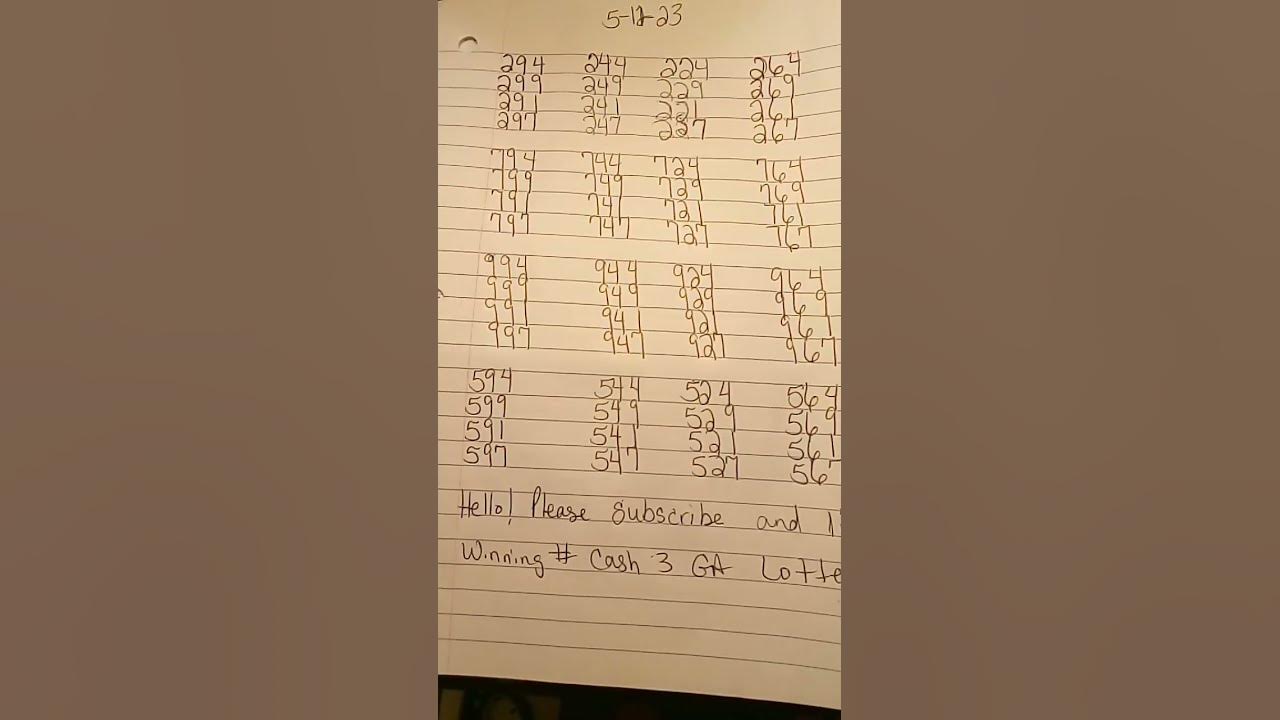 5-12-23
294 244 224 264
299 249 229 269
291 241 221 261
297 247 227 267
794 744 724 764
799 749 729 769
791 741 721 761
797 747 727 767
994 944 924 964
999 949 929 969
991 941 921 961
997 947 927 967
594 544 524 564
599 549 529 569
591 541 521 561
597 547 527 567
Hello! Please subscribe and
Winning # Cash 3 GA Lotte